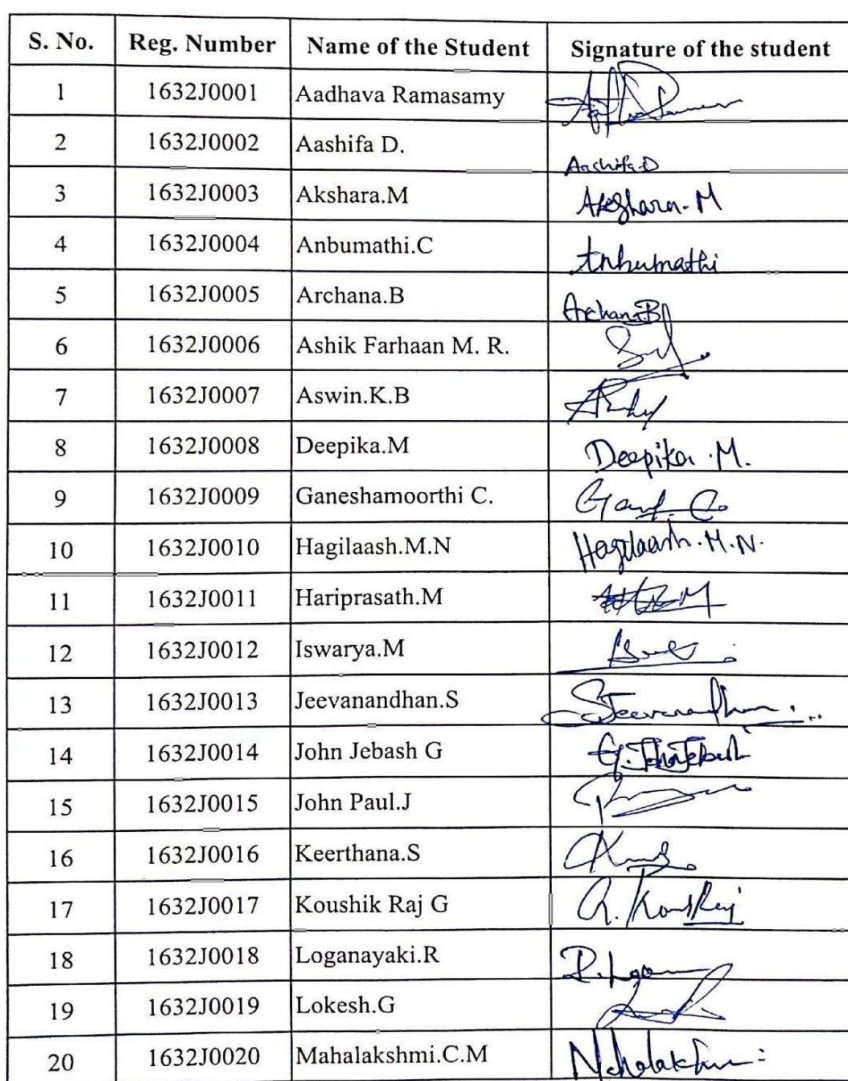 S. No. Reg. Number Name of the Student Signature of the student
1 1632J0001 Aadhava Ramasamy
2 1632J0002 Aashifa D. Aashifa.D
3 1632J0003 Akshara.M Akshara.M
4 1632J0004 Anbumathi.C Anbumathi
5 1632J0005 Archana.B Archana.B
6 1632J0006 Ashik Farhaan M. R.
7 1632J0007 Aswin.K.B
8 1632J0008 Deepika.M Deepika.M.
9 1632J0009 Ganeshamoorthi C.
10 1632J0010 Hagilaash.M.N Hagilaash.M.N.
11 1632J0011 Hariprasath.M
12 1632J0012 Iswarya.M
13 1632J0013 Jeevanandhan.S
14 1632J0014 John Jebash G G.JohnJebash
15 1632J0015 John Paul.J
16 1632J0016 Keerthana.S
17 1632J0017 Koushik Raj G
18 1632J0018 Loganayaki.R
19 1632J0019 Lokesh.G
20 1632J0020 Mahalakshmi.C.M